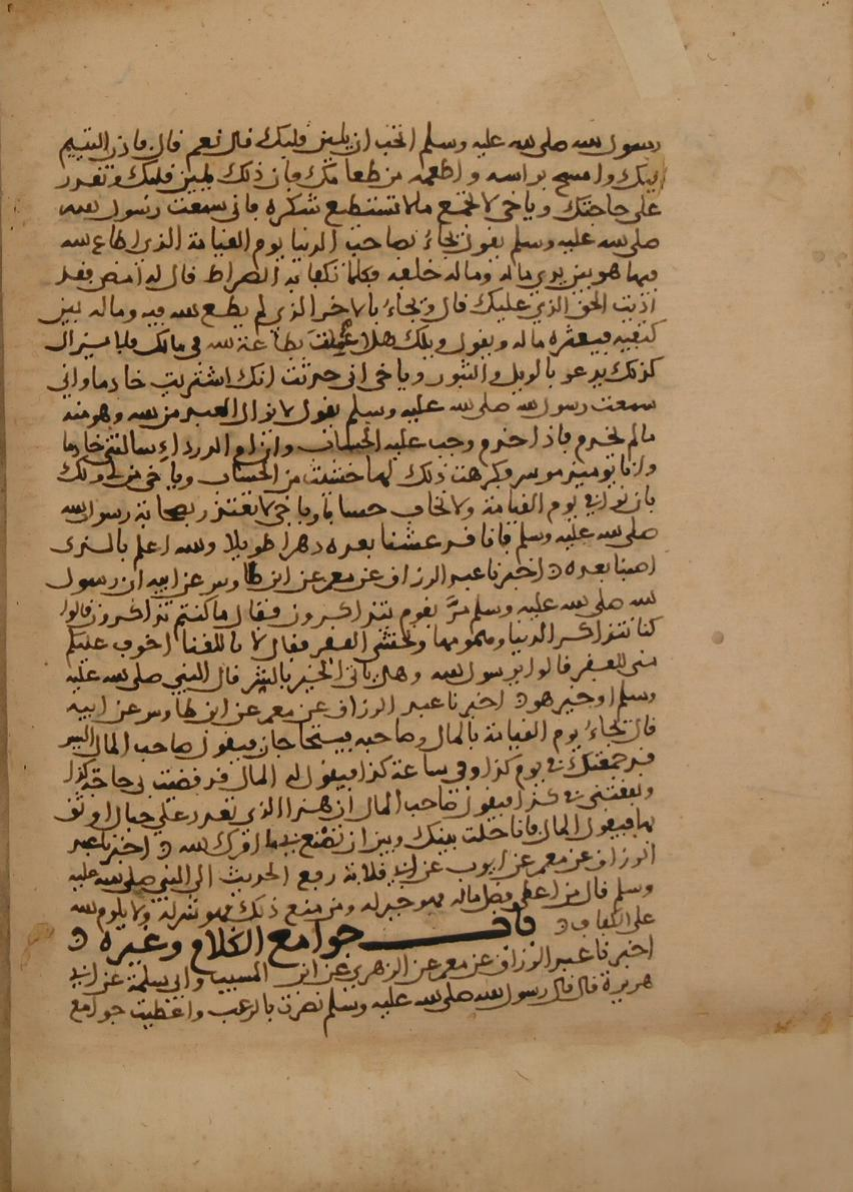 رسول الله صلى الله عليه وسلم اتحب ان يلين قلبك قال نعم قال فادن اليتيم
اليك وامسح براسه واطعمه من طعامك فان ذلك يلين قلبك وتقدر
على حاجتك ويا خي لا تجمع مالا تستطيع شكره فاني سمعت رسول الله
صلى الله عليه وسلم يقول يجاء بصاحب الدنيا يوم القيامة الذي اطاع الله
فيها هو بين يدي ماله وماله خلفه فكلما تكفا به الصراط قال له امض فقد
اديت الحق الذي عليك قال ويجاء بالاخر الذي لم يطع الله فيه وماله بين
كتفيه فيعثره ماله ويقول ويلك هلا عملت بطاعة الله في مالك فلا يزال
كذلك يدعو بالويل والثبور ويا خي اني حدثت انك اشتريت خادما واني
سمعت رسول الله صلى الله عليه وسلم يقول لا يزال العبد من الله وهو منه
مالم يخدم فاذا خدم وجب عليه الحساب وان ام الدرداء سالتني خادما
وانا يوميذ موسر فكرهت ذلك لما خشيت من الحساب ويا خي من لي ولك
بان نوافي يوم القيامة ولا نخاف حسابا ويا خي لا تغترن بصحابة رسول الله
صلى الله عليه وسلم فانا قد عشنا بعده دهرا طويلا والله اعلم بالذي
اصبنا بعده اخبرنا عبد الرزاق عن معمر عن ابن طاوس عن ابيه ان رسول
الله صلى الله عليه وسلم مر بقوم يتذاكرون فقال ما كنتم تذاكرون قالوا
كنا نتذاكر الدنيا وهمومها ونخشى الفقر فقال لا باللغنا اخوف عليكم
مني للفقر قالوا يرسول الله وهل ياتي الخير بالشر قال النبي صلى الله عليه
وسلم اوخير هو اخبرنا عبد الرزاق عن معمر عن ابن طاوس عن ابيه
قال يجاء يوم القيامة بالمال وصاحبه فيتحاجان فيقول صاحب المال اليس
قد جمعتك في يوم كذا وفي ساعة كذا فيقول له المال قد قضيت بي حاجة كذا
وانفقتني في كذا فيقول صاحب المال ان هذا الذي تعدد علي حبال اوثق
بها فيقول المال فانا حلت بينك وبين ان تصنع بي ما امرك الله اخبرنا عبد
الرزاق عن معمر عن ايوب عن ابي قلابة رفع الحديث الى النبي صلى الله عليه
وسلم قال من اعطى فضل ماله فهو خير له ومن منع ذلك فهو شر له ولا يلوم الله
على الكفاف
باب جوامع الكلام وغيره
اخبرنا عبد الرزاق عن معمر عن الزهري عن ابن المسيب وابي سلمة عن ابي
هريرة قال قال رسول الله صلى الله عليه وسلم نصرت بالرعب واعطيت جوامع